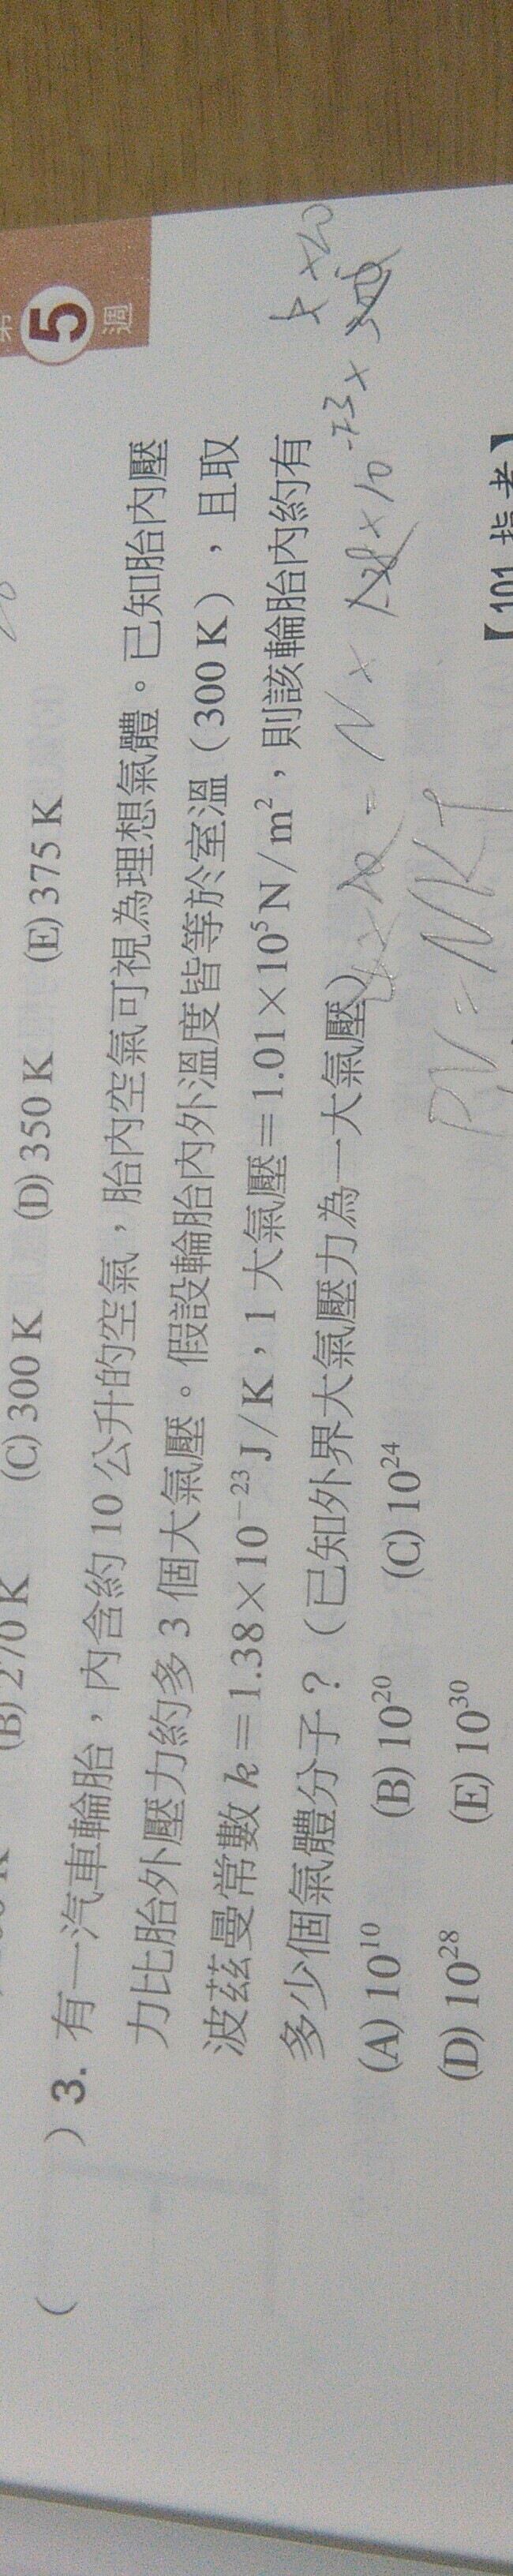 第5週
(B) 270 K (C) 300 K (D) 350 K (E) 375 K
( ) 3. 有一汽車輪胎，內含約 10 公升的空氣，胎內空氣可視為理想氣體。已知胎內壓
力比胎外壓力約多 3 個大氣壓。假設輪胎內外溫度皆等於室溫（300 K），且取
波茲曼常數 k＝1.38×10⁻²³ J/K，1 大氣壓＝1.01×10⁵ N/m²，則該輪胎內約有
多少個氣體分子？（已知外界大氣壓力為一大氣壓）
(A) 10¹⁰ (B) 10²⁰ (C) 10²⁴
(D) 10²⁸ (E) 10³⁰
【101.指考】
PV = NKT